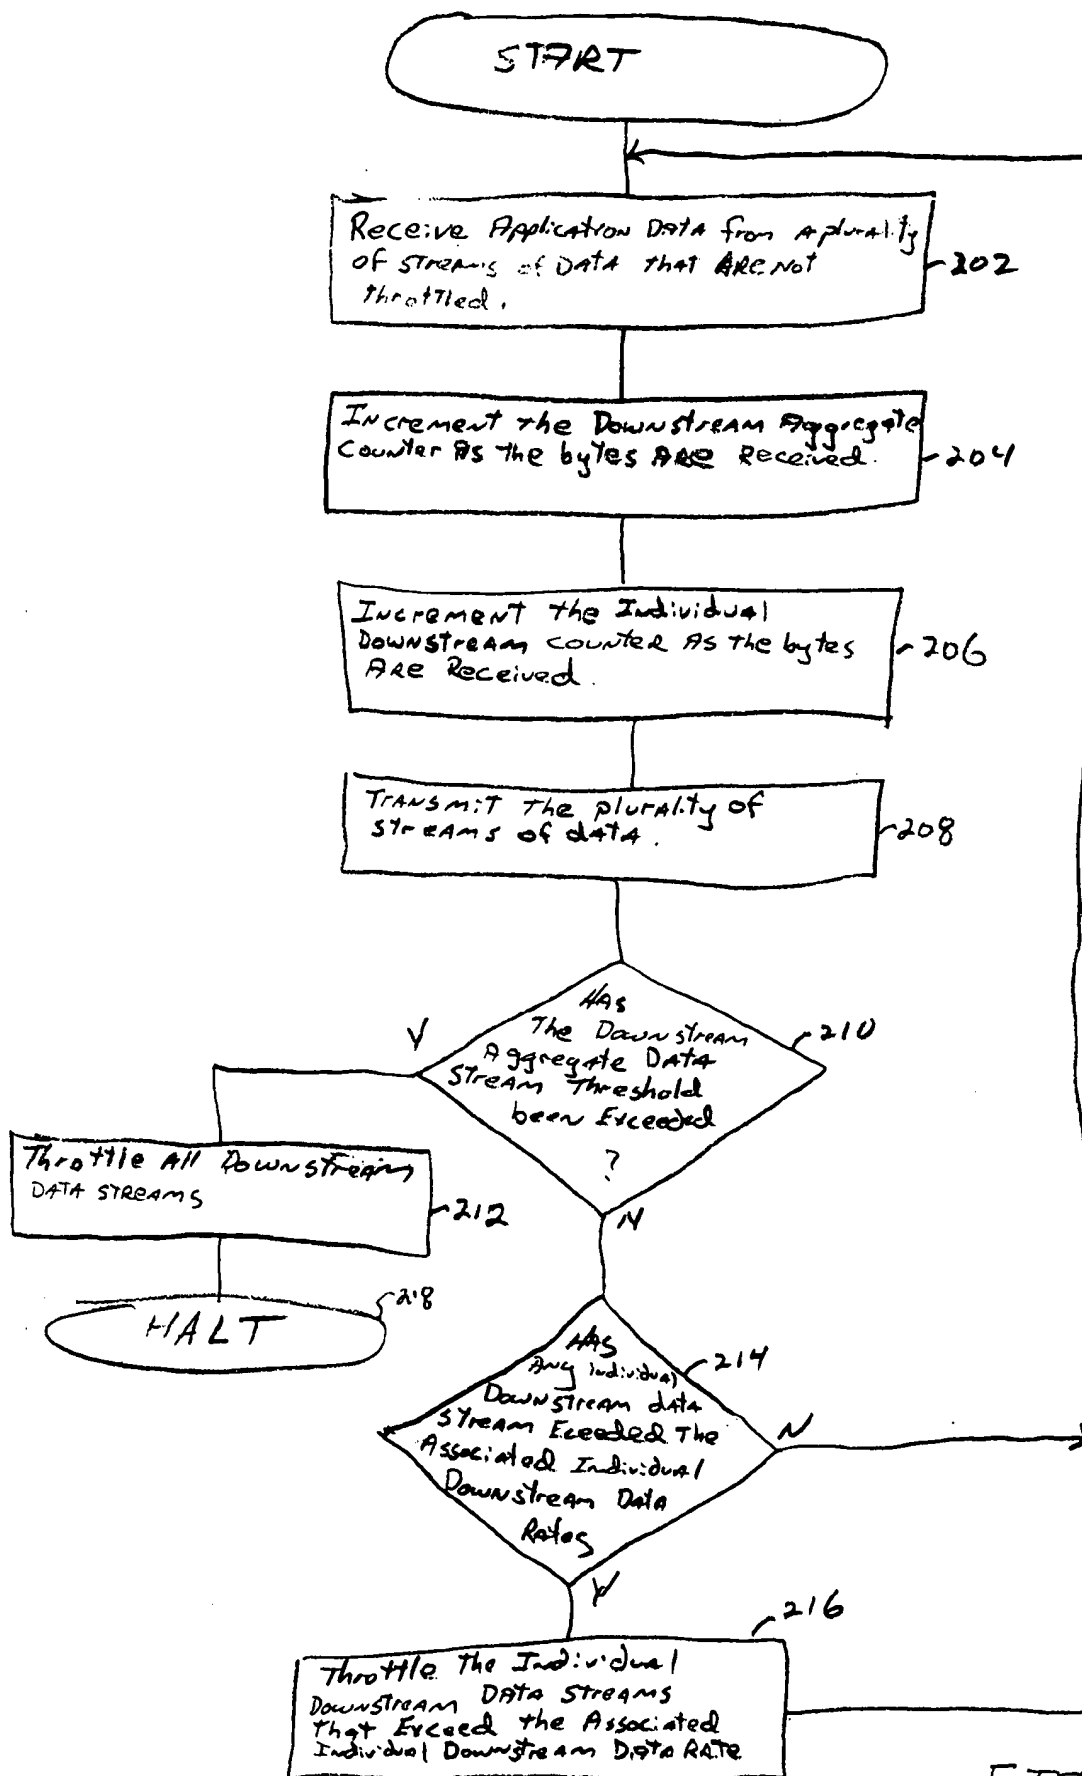 START
Receive Application Data from a plurality
of streams of Data that are not
throttled.
202
Increment the Downstream Aggregate
counter as the bytes are received.
204
Increment the Individual
Downstream counter as the bytes
are Received.
206
Transmit the plurality of
streams of data.
208
Has
The Downstream
Aggregate Data
Stream Threshold
been Exceeded
?
210
Y
Throttle All Downstream
Data streams
212
N
HALT
218
Has
Any individual
Downstream data
stream Eceeded The
Associated Individual
Downstream Data
Rates
214
N
Y
216
Throttle the Individual
Downstream Data Streams
that Exceed the Associated
Individual Downstream Data Rate